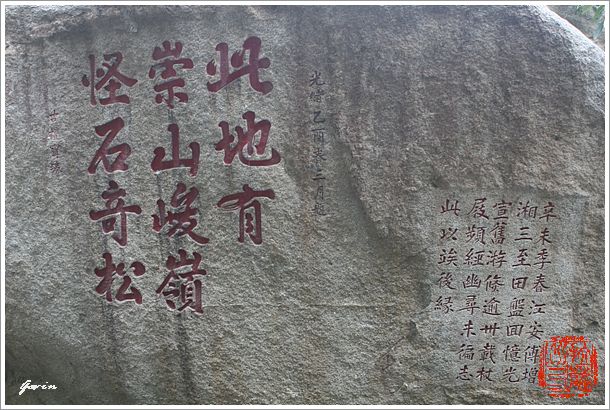 辛未季春江安傅增
湘三至田盤回憶光
宣舊游倏逾卅載杖
屐頻經幽尋未徧志
此以竢後緣
光緒乙酉三月
此地有
崇山峻嶺
怪石奇松
Gavin